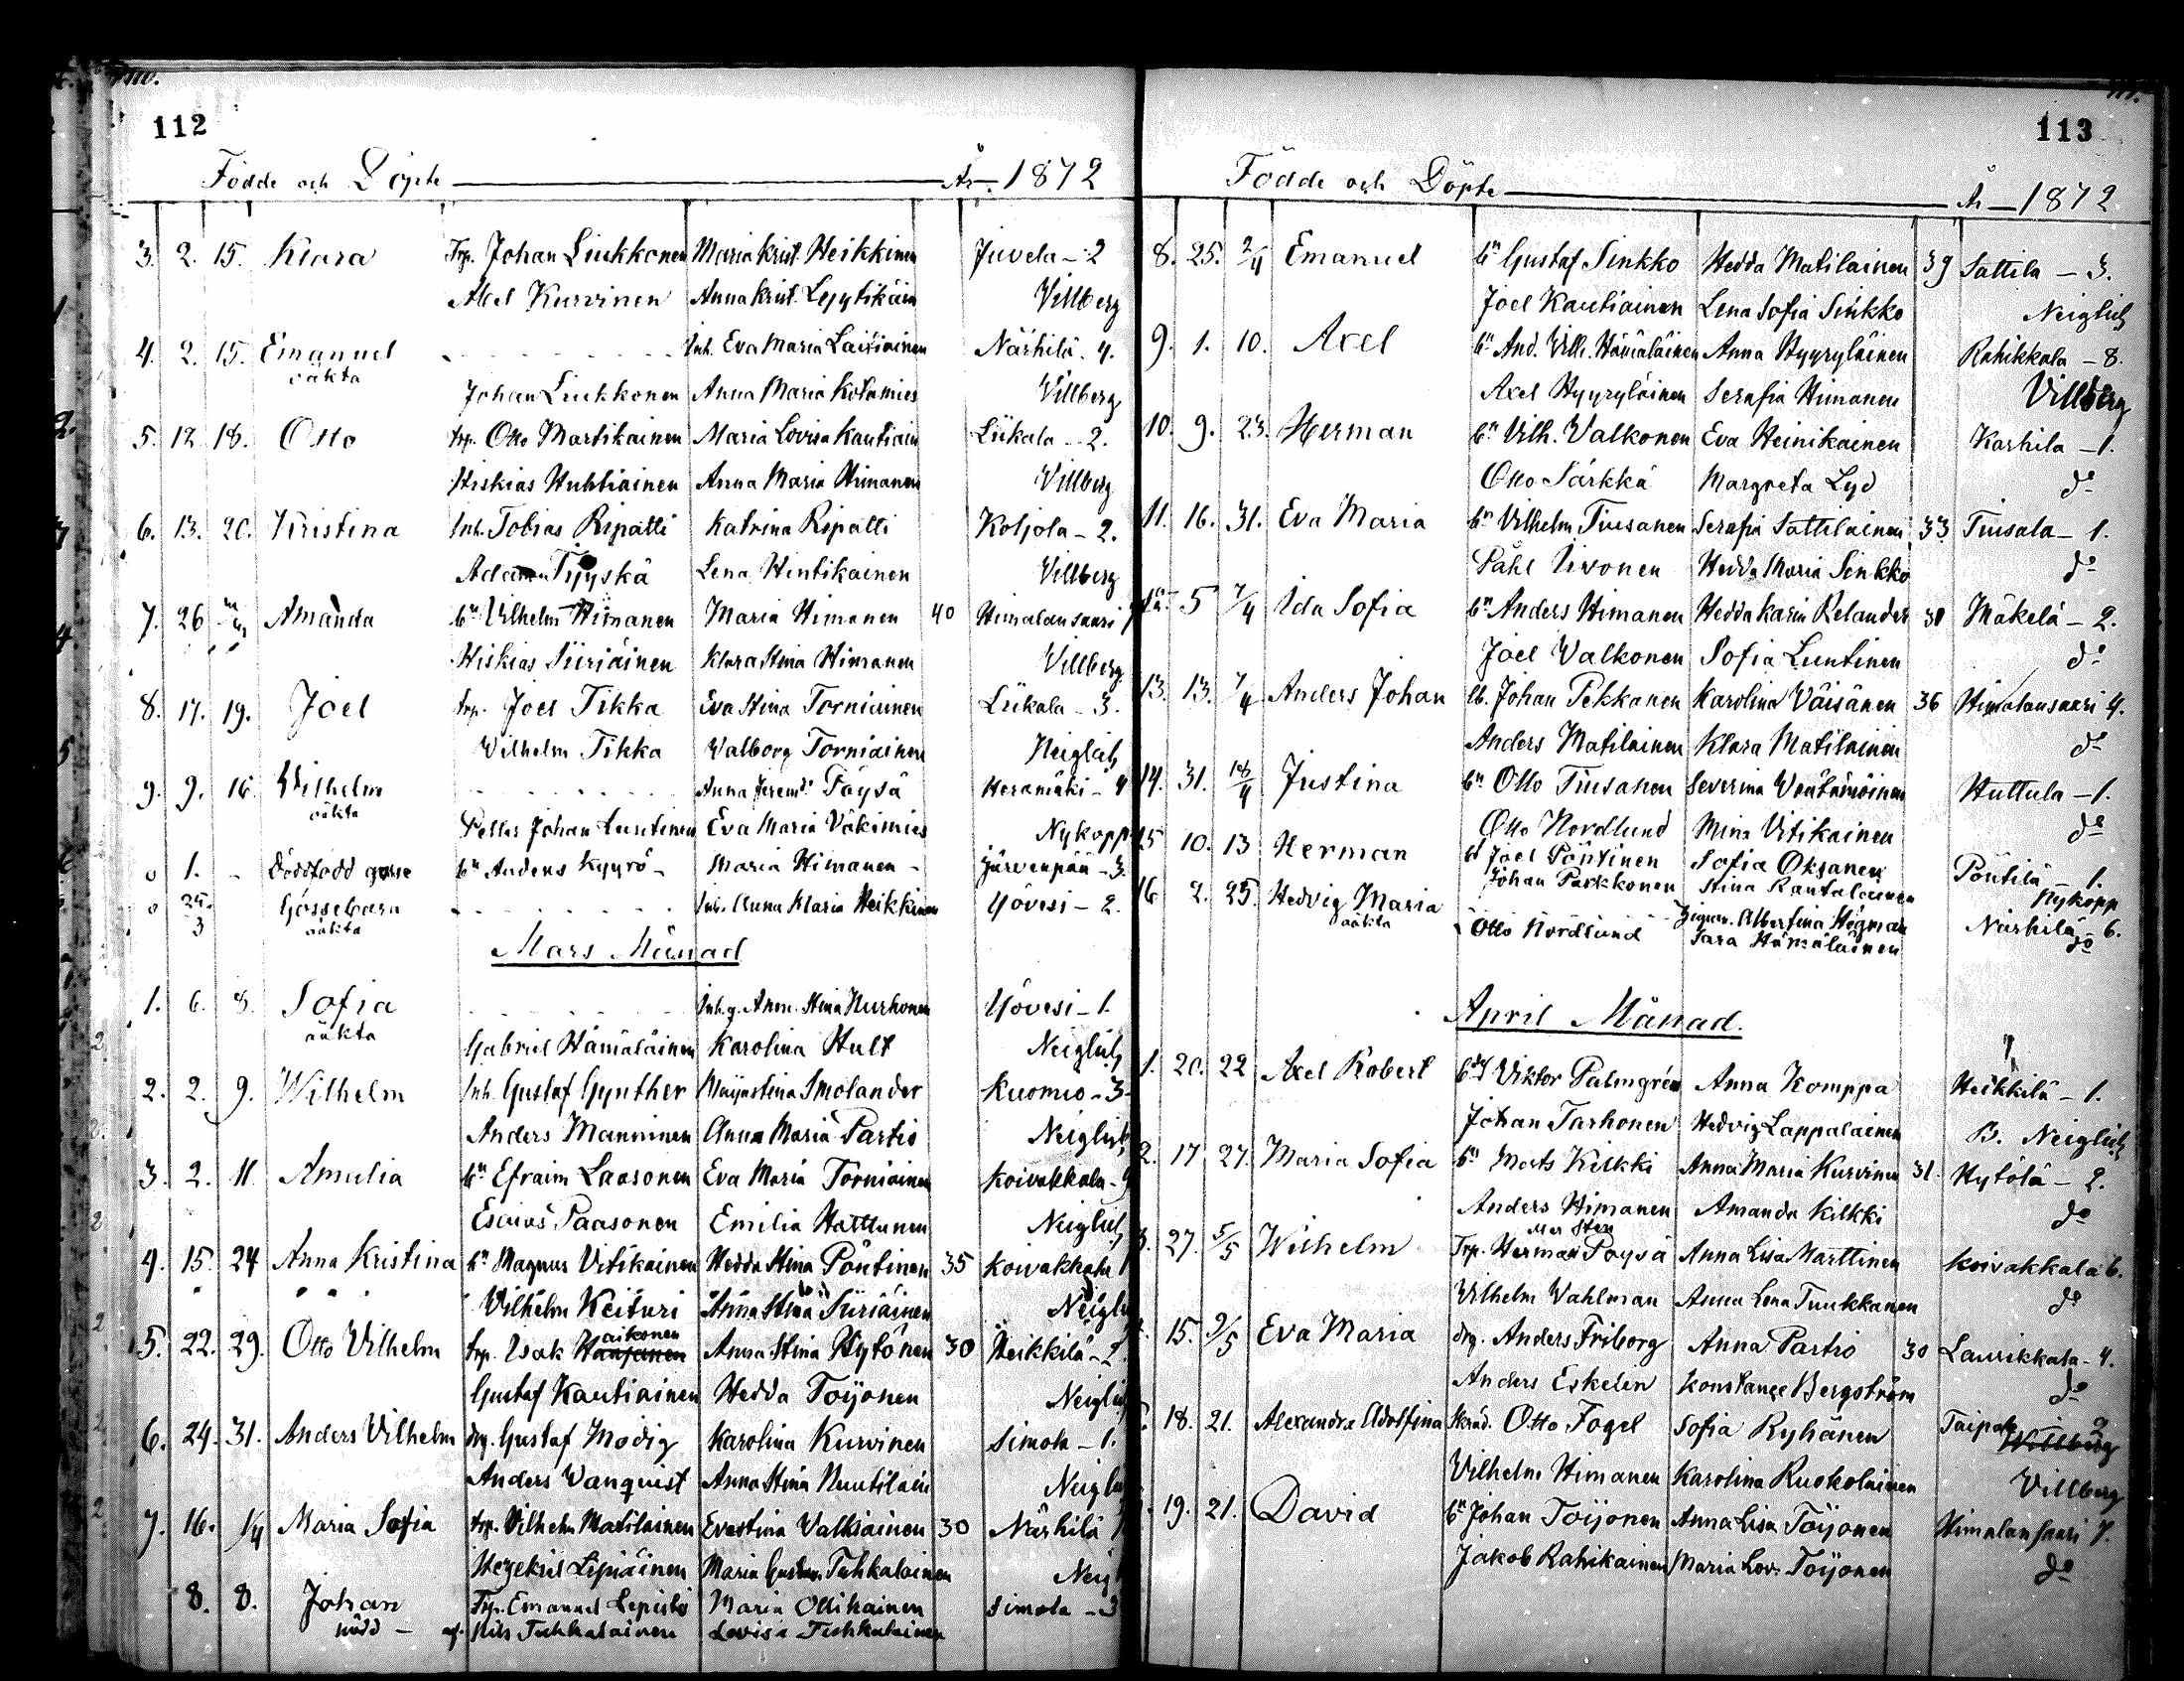 112
Födde och Döpte År 1872
3. 2. 15. Klara Trp. Johan Liukkonen Maria Krist. Heikkinen Juvela - 2
Abel Kurvinen Anna Krist. Lyytikäin Villberg
4. 2. 15. Emanuel Inh. Eva Maria Laitiainen Närhilä. 4.
oäkta
Johan Liukkonen Anna Maria Kolamies Villberg
5. 12 18. Otto trp. Otto Martikainen Maria Lovisa Kautiain Liikala - 2.
Hiskias Huhtiainen Anna Maria Himanen Villberg
6. 13. 20. Kristina Inh. Tobias Ripatti Katrina Ripatti Koljola - 2.
Lena Hintikainen Villberg
7. 26 Amanda bn Vilhelm Himanen Maria Himanen 40 Himalansaari
Hiskias Siiriäinen Klara Stina Himanen Villberg
8. 17. 19. Joel trp. Joel Tikka Eva Stina Torniainen Liikala - 3.
Wilhelm Tikka Walborg Torniainen Neiglick
9. 9. 16. Wilhelm Anna Jerem.dr Töysä Heramäki - 4
oäkta
Petter Johan Luntinen Eva Maria Väkimies Nykopp
0 1. - Dödfödd gosse bn Anders Kyyrö - Maria Himanen - Järvenpää - 3.
0 25. Gossebarn Inh. Anna Maria Heikkinen Yövesi - 2.
3 oäkta
Mars Månad
1. 6. 8. Sofia Inh.g. Ann. Stina Nurhonen Yövesi - 1.
oäkta
Gabriel Hämäläinen Karolina Hult Neiglick
2. 2. 9. Wilhelm Inh. Gustaf Gynther Majastina Smolander Kuomio - 3
Anders Manninen Anna Maria Partio Neiglick
3. 2. 11. Amulia bn Efraim Laasonen Eva Maria Torniainen Koivakkala - 9
Esaias Paasonen Emilia Hatttunen Neiglick
4. 15. 24 Anna Kristina bn Magnus Vitikainen Hedda Stina Pöntinen 35 Koivakkala
Vilhelm Keituri Anna Stina Siiriäinen Neiglick
5. 22. 29. Otto Vilhelm trp. Isak Haikonen Anna Stina Hytönen 30 Heikkilä - 2.
Gustaf Kautiainen Hedda Toijonen Neiglick
6. 24. 31. Anders Vilhelm drg. Gustaf Modig Karolina Kurvinen Simola - 1.
Anders Wanquist Anna Stina Nuutilain Neiglick
7. 16. 1/4 Maria Sofia trp. Vilhelm Matilainen Evastina Valkiainen 30 Närhilä
Hezekiel Lipiäinen Maria Gustava Tuhkalainen Neig
8. 8. Johan Trp. Emanuel Lepistö Maria Ollikainen Simola - 3
nödd - af. Nils Tuhkalainen Lovisa Tuhkalainen
113
Födde och Döpte År 1872
8. 25. 2/4 Emanuel bn Gustaf Sinkko Hedda Matilainen 39 Sattila - 3.
Joel Kautiainen Lena Sofia Sinkko Neiglick
9. 1. 10. Axel bn And. Vilh. Hämäläinen Anna Hyyryläinen Rahikkala - 8.
Axel Hyyryläinen Serafia Himanen Villberg
10. 9. 23. Herman bn Vilh. Valkonen Eva Heinikainen Karhila - 1.
Otto Särkkä Margreta Lyd do
11. 16. 31. Eva Maria bn Vilhelm Tiusanen Serafia Sattilainen 33 Tiusala - 1.
Påhl Uvonen Hedda Maria Sinkko do
12. 5 7/4 Ida Sofia bn Anders Himanen Hedda Karin Relander 30 Mäkelä - 2.
Joel Valkonen Sofia Luntinen do
13. 13. 7/4 Anders Johan lb. Johan Pekkanen Karolina Väisänen 36 Himalansaari 4.
Anders Matilainen Klara Matilainen do
14. 31. 18/4 Justina bn Otto Tiusanen Severina Huttula - 1.
Otto Nordlund Mina Vitikainen do
15 10. 13 Herman bn Joel Pöntinen Sofia Oksanen Pöntilä - 1.
Johan Parkkonen Stina Rautalainen Nykopp
16 2. 25. Hedvig Maria Albertina Högman Närhilä - 6.
oäkta Otto Nordlund Sara Hämäläinen do
April Månad.
1. 20. 22 Axel Robert Viktor Palmgrén Anna Komppa Heikkilä - 1.
Johan Tarhonen Hedvig Lappalainen B. Neiglick
2. 17 27. Maria Sofia bn Mats Kilkki Anna Maria Kurvinen 31. Hytölä - 2.
Anders Himanen Amanda Kilkki do
3. 27. 5/5 Wilhelm Trp. Herman Töysä Anna Lisa Marttinen Koivakkala 6.
Vilhelm Vahlman Anna Lena Tuukkanen do
15. 9/5 Eva Maria drg. Anders Friborg Anna Partio 30 Laurikkala - 4.
Anders Eskelin Konstance Bergström do
18. 21. Alexandra Adolfina Skräd. Otto Fogel Sofia Ryhänen Taipale
Vilhelm Himanen Karolina Ruokolainen Villberg
19. 21. David bn Johan Toijonen Anna Lisa Toijonen Himalansaari 7.
Jakob Rahikainen Maria Lovs. Toijonen do